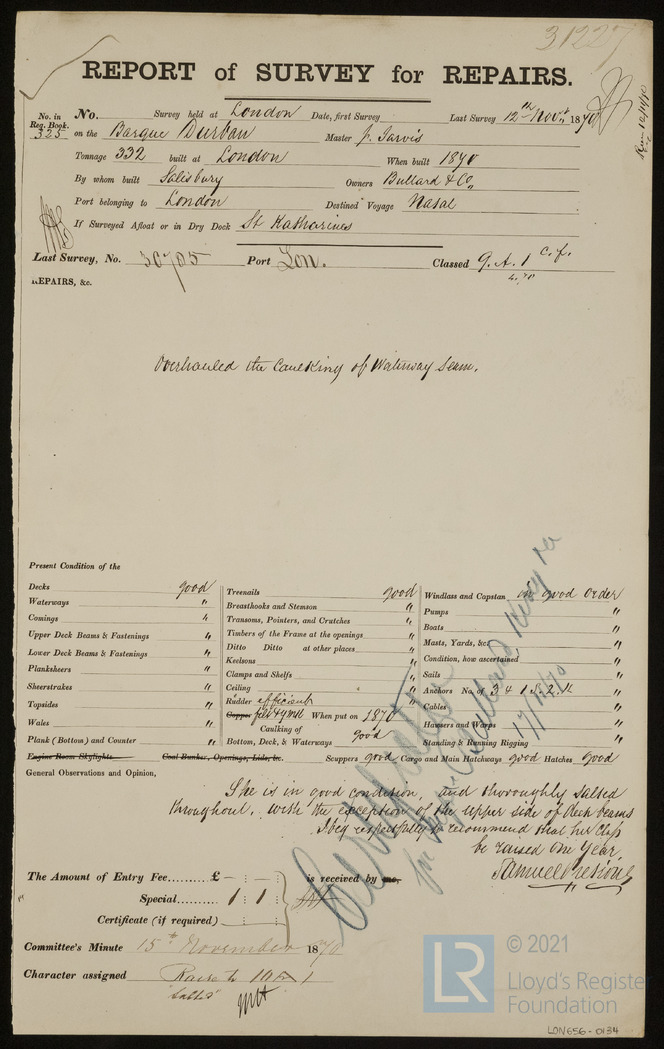 31227
REPORT of SURVEY for REPAIRS.
No. in Reg. Book. 325
No. Survey held at London Date, first Survey Last Survey 12th Novr. 1870
on the Barque Durban Master J. Jarvis
Tonnage 332 built at London When built 1870
By whom built Salisbury Owners Bullard & Co.
Port belonging to London Destined Voyage Natal
If Surveyed Afloat or in Dry Dock St Katharines
Last Survey, No. 30705 Port Lon. Classed 9. A. 1 c.f.
4.70
REPAIRS, &c.
Overhauled the Caulking of Waterway Seam.
Present Condition of the
Decks good
Waterways "
Comings "
Upper Deck Beams & Fastenings "
Lower Deck Beams & Fastenings "
Planksheers "
Sheerstrakes "
Topsides "
Wales "
Plank (Bottom) and Counter "
Engine Room Skylights Coal Bunker, Openings, Lids, &c.
Treenails good
Breasthooks and Stemson "
Transoms, Pointers, and Crutches "
Timbers of the Frame at the openings "
Ditto Ditto at other places "
Keelsons "
Clamps and Shelfs "
Ceiling "
Rudder efficient "
Copper felt & YM When put on 1870
Caulking of
Bottom, Deck, & Waterways good
Windlass and Capstan in good order
Pumps "
Boats "
Masts, Yards, &c. "
Condition, how ascertained "
Sails "
Anchors No. of 3 & 1 S. 2. K
Cables "
Hawsers and Warps "
Standing & Running Rigging "
Scuppers good Cargo and Main Hatchways good Hatches good
General Observations and Opinion,
She is in good condition, and thoroughly salted
throughout, with the exception of the upper side of deck beams
I beg respectfully to recommend that her Class
be raised one Year,
Samuel
Certificate
17/11/70
The Amount of Entry Fee £ — : — : is received by me,
Special 1 : 1 :
Certificate (if required) : :
Committee's Minute 15th November 1870
Character assigned Raise to 10 A 1
"Salted"
LR
© 2021
Lloyd's Register
Foundation
LON656-0134